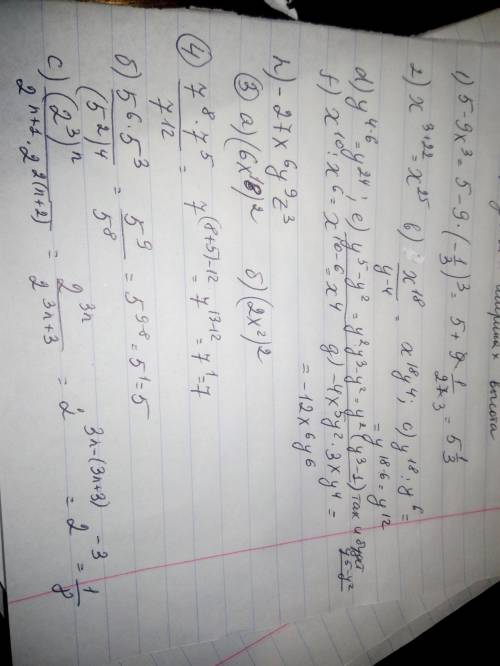 высота
1) 5-9x³ = 5-9·(-1/3)³ = 5+9·1/27 3 = 5 1/3
2) x³⁺²² = x²⁵ b) x¹⁸/y⁻⁴ = x¹⁸y⁴; c) y¹⁸:y⁶ =
= y¹⁸⁻⁶ = y¹²
d) y⁴·⁶ = y²⁴; e) y⁵-y² = y²y³-y² = y²(y³-1) так и будет y⁵-y²
f) x¹⁰:x⁶ = x¹⁰⁻⁶ = x⁴ g) -4x⁵y²·3xy⁴ =
= -12x⁶y⁶
h) -27x⁶y⁹z³
③ а) (6x¹⁸)² б) (2x²)²
④ 7⁸·7⁵/7¹² = 7⁽⁸⁺⁵⁾⁻¹² = 7¹³⁻¹² = 7¹ = 7
б) 5⁶·5³/(5²)⁴ = 5⁹/5⁸ = 5⁹⁻⁸ = 5¹ = 5
c) (2³)ⁿ/2ⁿ⁺¹·2²⁽ⁿ⁺²⁾ = 2³ⁿ/2³ⁿ⁺³ = 2³ⁿ⁻⁽³ⁿ⁺³⁾ = 2⁻³ = 1/8